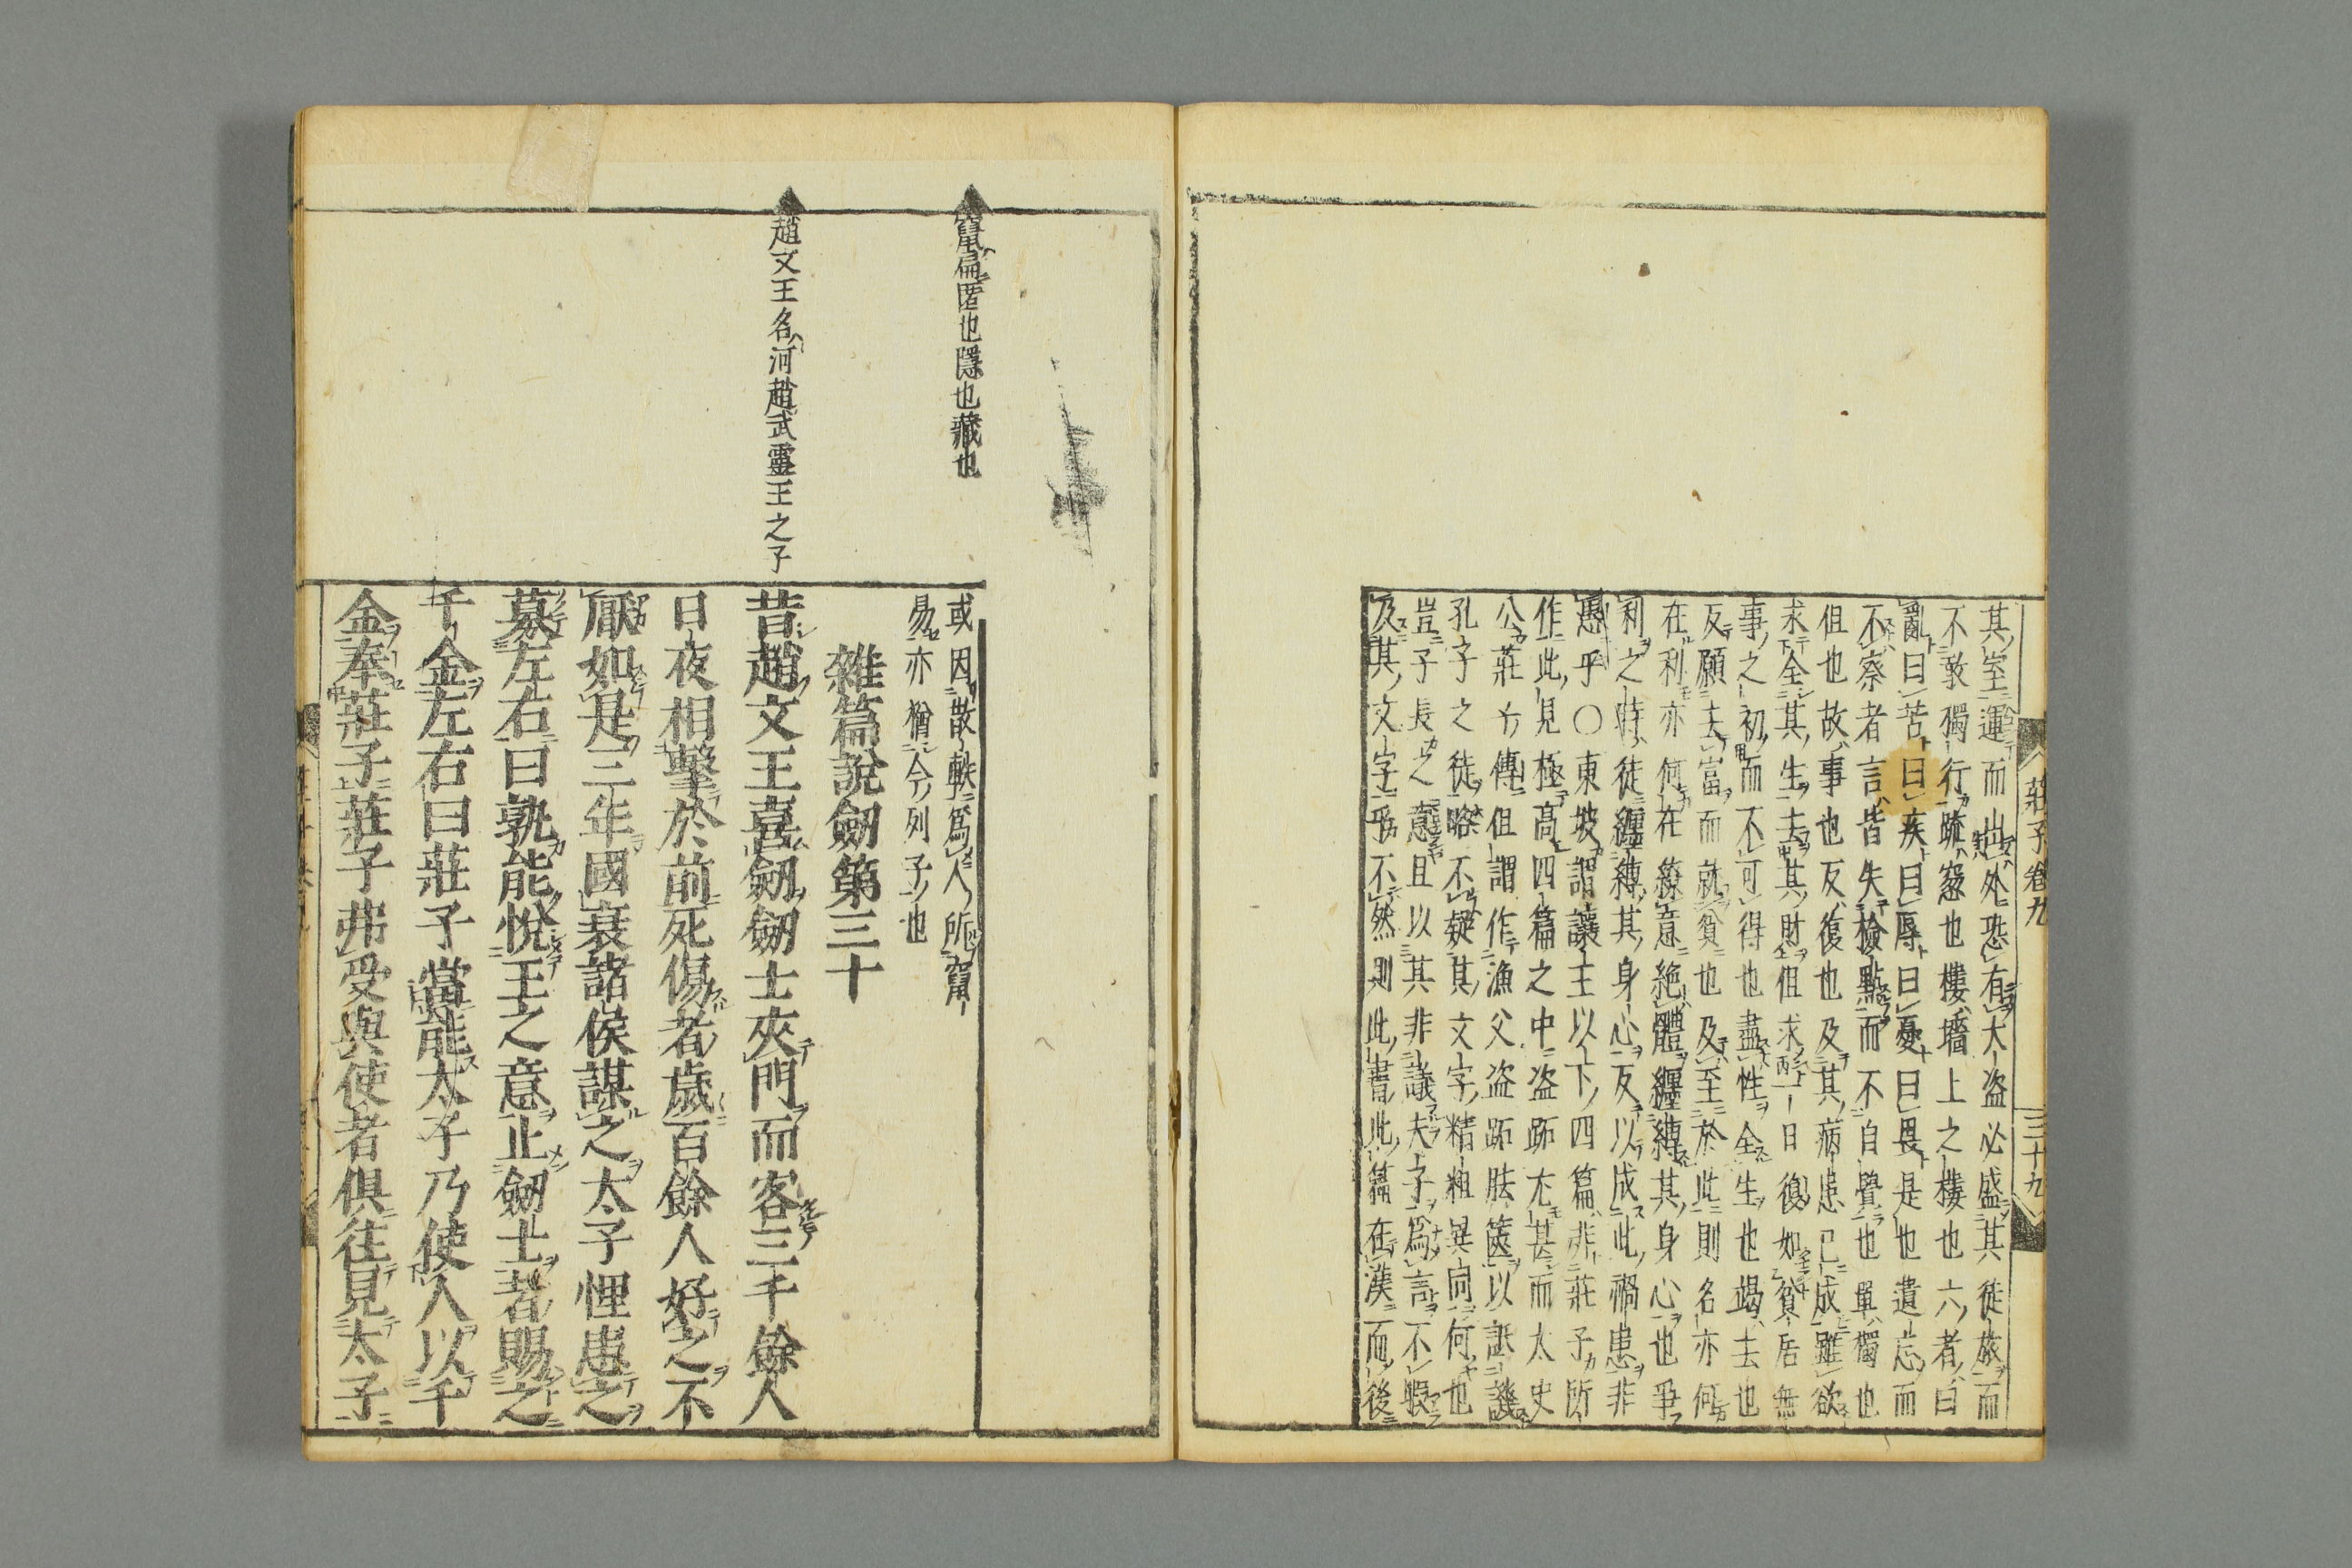 莊子卷九 三十九
其室運而出处恐有大盗必盛其徒旅而
不敢獨行疏窓也樓墻上之樓也六者曰
亂曰苦曰疾曰辱曰憂曰畏是也遺忘而
不察者言皆失檢點而不自覺也單獨也
但也故事也反復也及其病患已成雖欲
求全其生去其財但求一日復如貧居無
事之初而不可得也盡性全生也竭去也
反願去富而就貧也及至於此則名亦何
在利亦何在繚意絶體纏縛其身心也爭
利之時徒纏縛其身心反以成此禍患非
愚乎〇東坡謂讓王以下四篇非莊子所
作此見極髙四篇之中盗跖尤甚而太史
公莊子傳但謂作漁父盗跖胠篋以詆譏
孔子之徒略不疑其文字精粗異同何也
豈子長之意且以其非議夫子爲言不暇
及其文字乎不然則此書此篇在漢而後
竄扁匿也隱也藏也
趙文王名河趙武靈王之子
或因散軼爲人所竄
易亦猶今列子也
雜篇說劒第三十
昔趙文王喜劒劒士夾門而客三千餘人
日夜相擊於前死傷者歲百餘人好之不
厭如是三年國衰諸侯謀之太子悝患之
募左右曰孰能悅王之意止劒士者賜之
千金左右曰莊子當能太子乃使人以千
金奉莊子莊子弗受與使者俱徃見太子